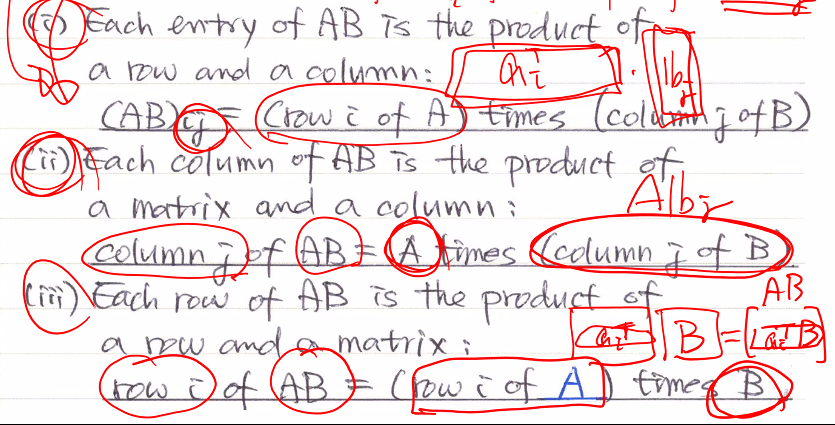 (i) Each entry of AB is the product of
a row and a column:
(AB)ij = (row i of A) times (column j of B)
(ii) Each column of AB is the product of
a matrix and a column:
column j of AB = A times (column j of B)
(iii) Each row of AB is the product of
AB
a row and a matrix:
B =
row i of AB = (row i of A) times B